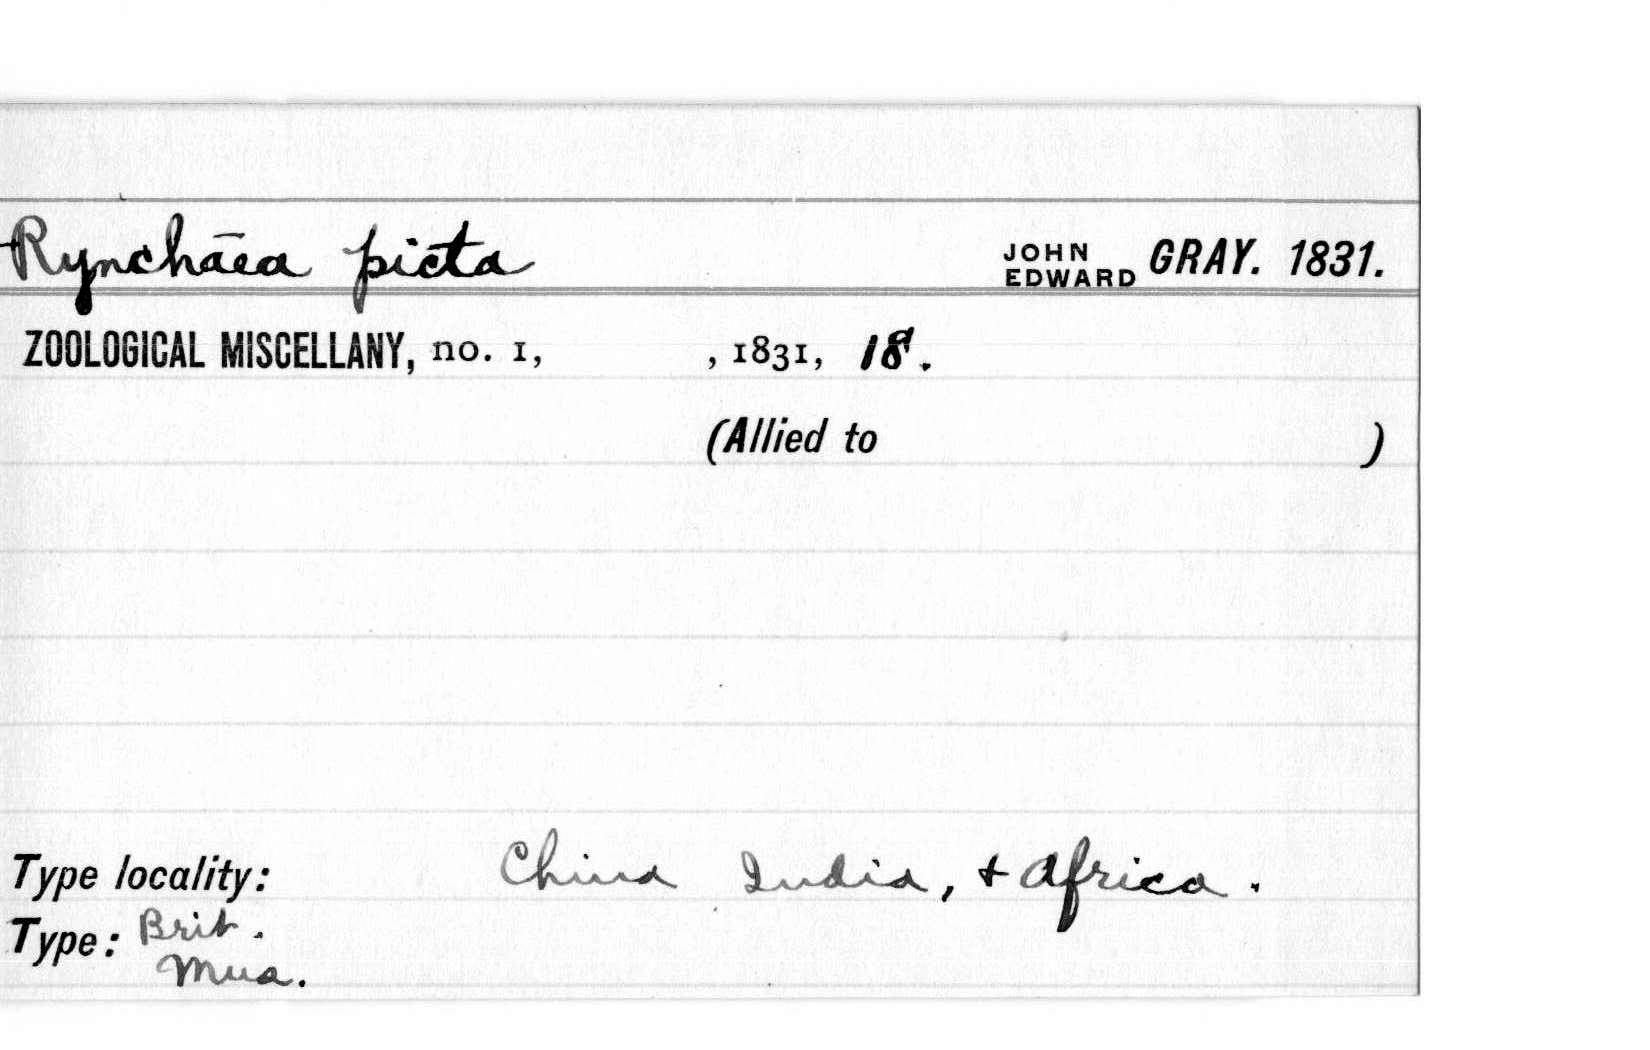 Rynchāea picta JOHN EDWARD GRAY. 1831.
ZOOLOGICAL MISCELLANY, no. 1, , 1831, 18.
(Allied to )
Type locality: China India, + Africa.
Type: Brit.
Mus.